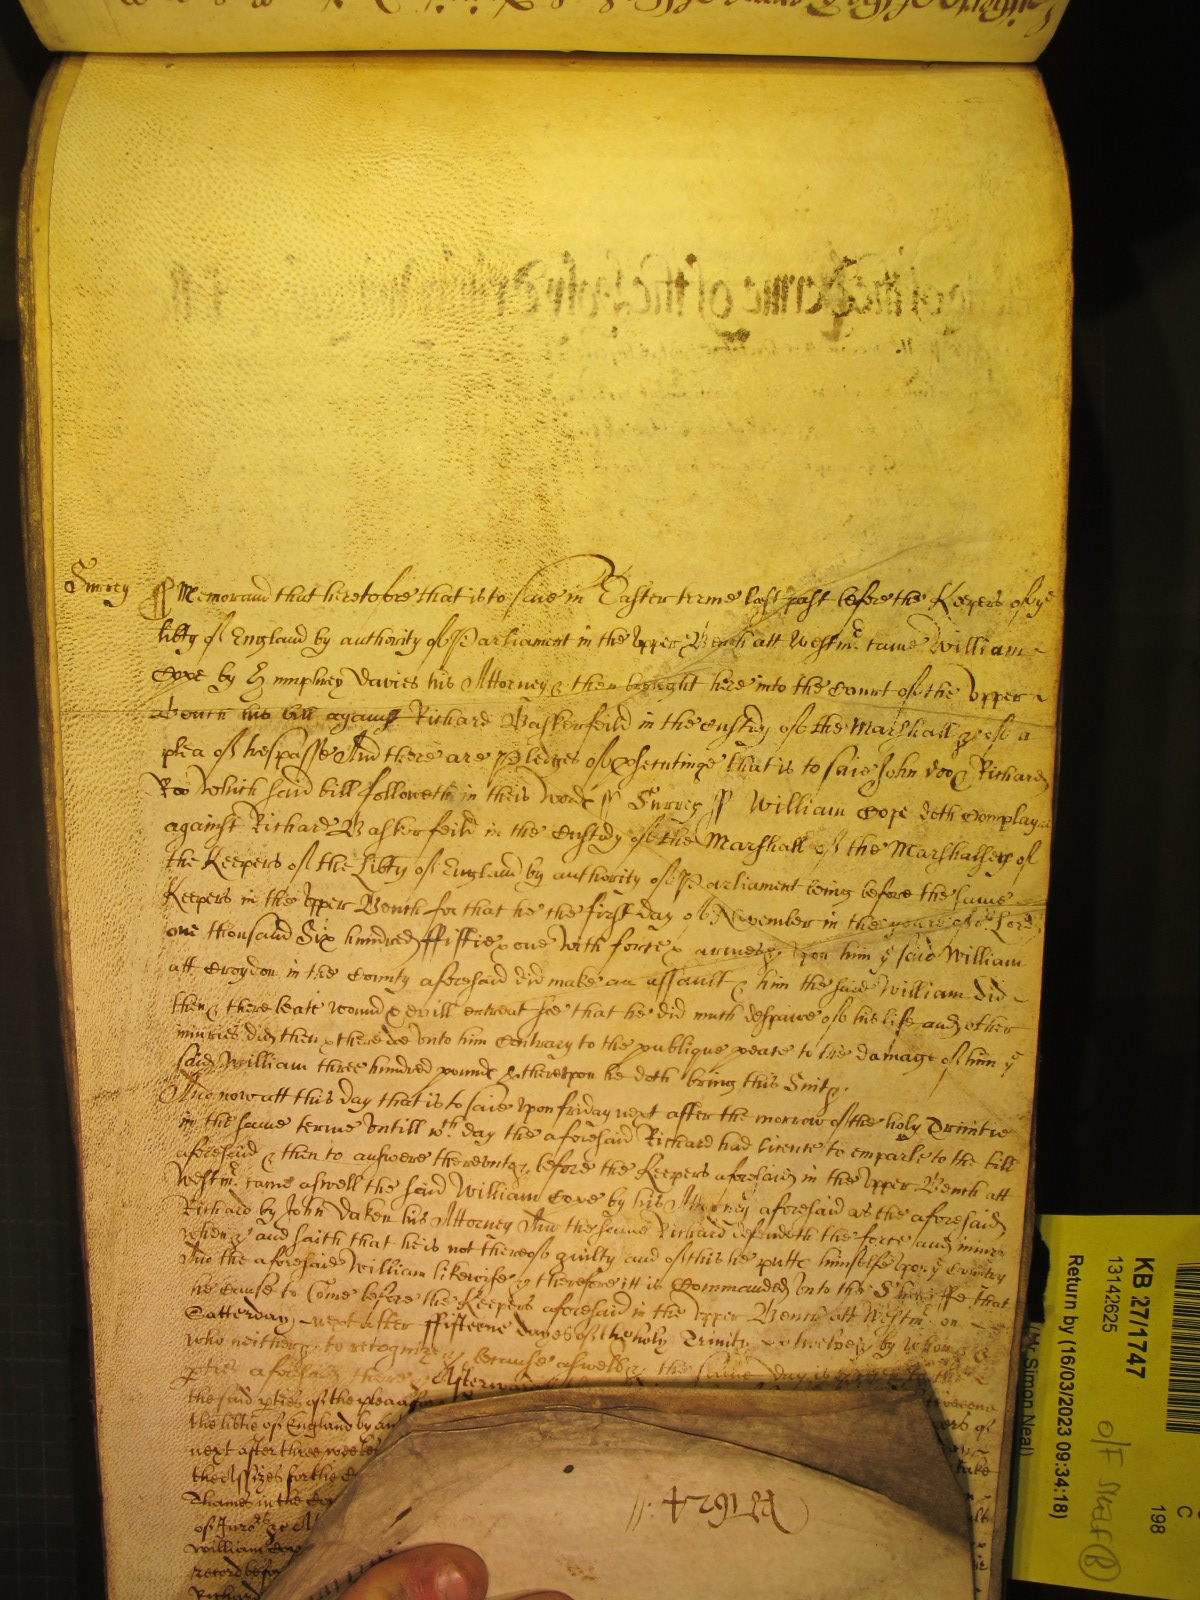 Surrey
Memorand that heretofore that is to saie in Easter terme last past before the Keepers of ye
libty of England by authority of Parliament in the Upper Bench att Westmr. came William
Cope by Humphrey Davies his Attorney & then brought here into the Court of the Upper
Bench his bill against Richard Baskerfeild in the custdy of the Marshall &c of a
plea of trespasse And there are Pledges of psecutinge that is to saie John Doo & Richard
Roo Which said bill followeth in theis Words ss Surrey ss William Cope doth Complayne
against Richard Baskerfeild in the Custody of the Marshall of the Marshalsey of
the Keepers of the Libty of England by authority of Parliament being before the same
Keepers in the Upper Bench for that he the first day of November in the yeare of or. Lord
one thousand Six hundred ffiftie & one With force & armes &c upon him ye said William
att Croydon in the County aforesaid did make an assault & him the said William did
then & there beate wound & evill entreat soe that he did much despaire of his life and other
iniuries did then & there doe unto him Contrary to the publique peace to the damage of him ye
said William three hundred pounds & thereupon he doth bring this Suit &c.
And now att this day that is to saie Upon friday next after the morrow of the holy Trinitie
in the same terme Untill wch. day the aforesaid Richard had licence to emparle to the bill
aforesaid & then to answere thereunto &c before the Keepers aforesaid in the Upper Bench att
Westmr. came aswell the said William Cope by his Attorney aforesaid as the aforesaid
Richard by John Daken his Attorney And the same Richard defendeth the force and iniury
when &c and saith that he is not thereof guilty and of this he putts himselfe upon ye Country
And the aforesaid William likewise & therefore itt is Commanded Unto the Sheriffe that
he Cause to Come before the Keepers aforesaid in the Upper Bench att Westmr. on
Satterday next after ffifteene dayes of the holy Trinity twelve &c by whom &c
who neither &c to recognize &c because aswell &c the same day is
pties aforesaid there &c Afterward
the said pties of the plea
the libtie of England by au
next after three weekes
the Assizes for the
Thames in the Co
of Jur
William Cope
record befo
Richard
KB 27/1747
13142625
Return by (16/03/2023 09:34:18)
(Mr Simon Neal)
O/F Staf
C
198